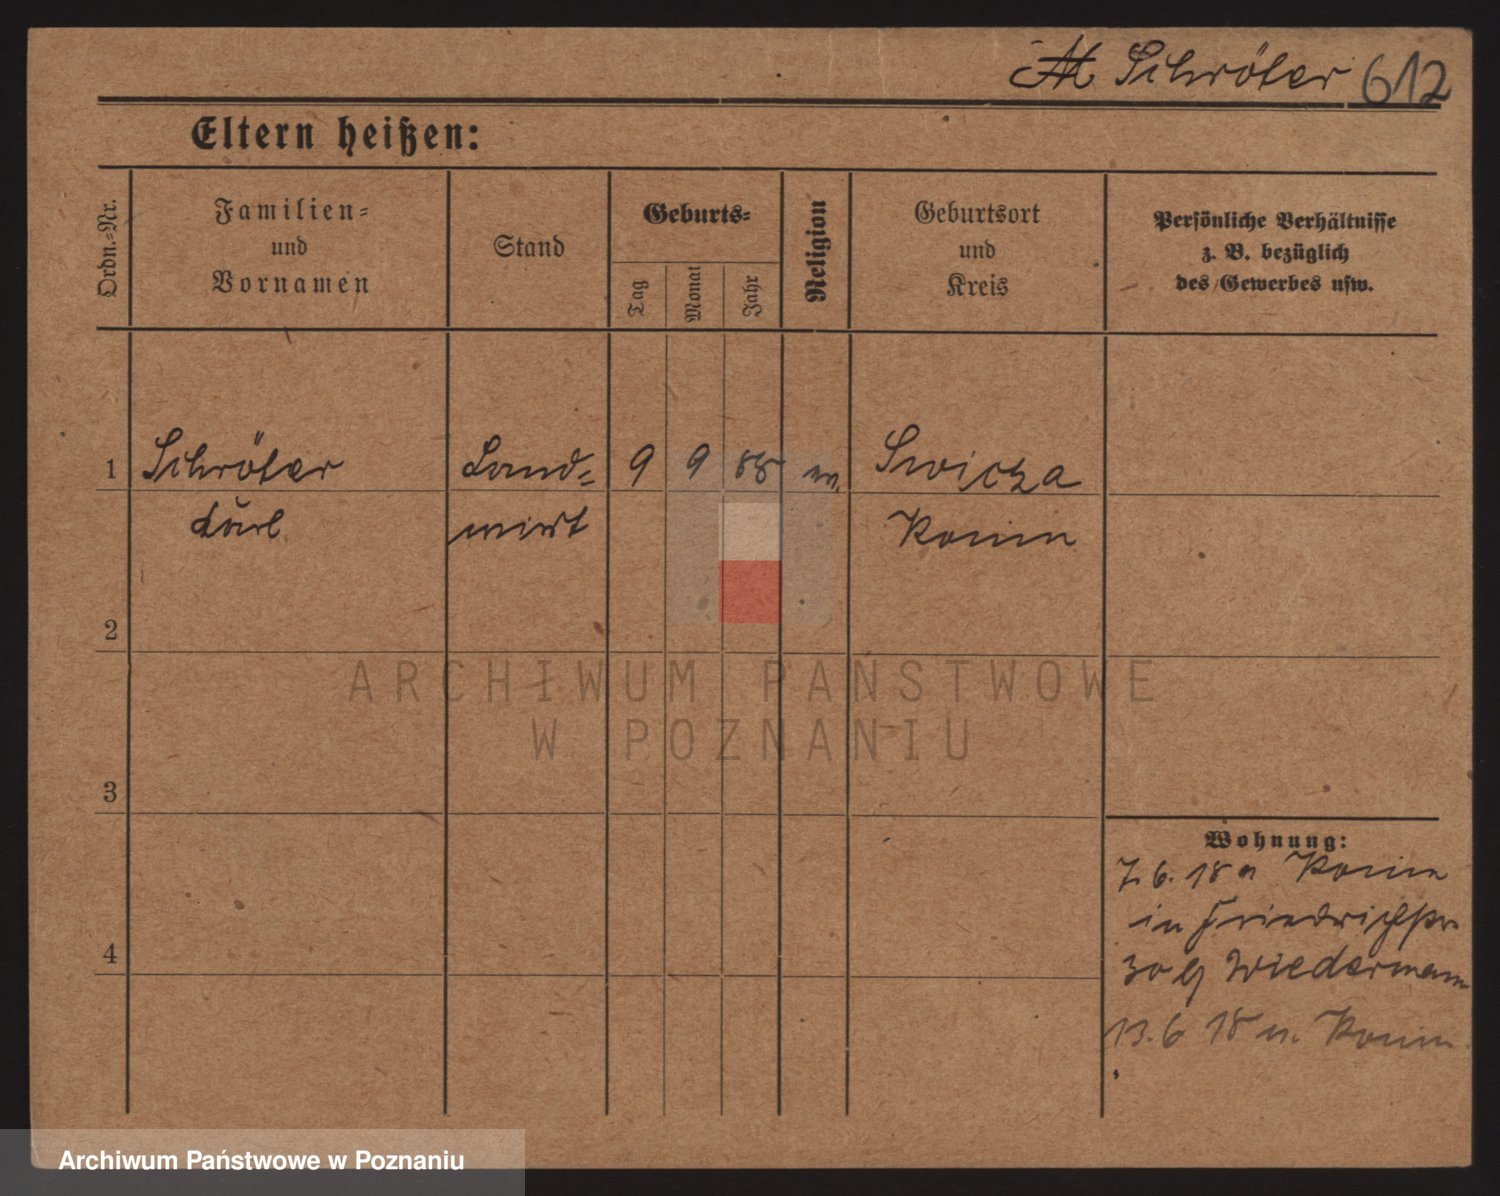 Schröter 612
Eltern heißen:
Ordn.=Nr.
Familien=
und
Vornamen
Stand
Geburts=
Tag
Monat
Jahr
Religion
Geburtsort
und
Kreis
Persönliche Verhältnisse
z. B. bezüglich
des Gewerbes usw.
1 Schröter Land= 9 9 88 Swicza
Karl wirt Konin
2
3
4
Wohnung:
7.6.18 Konin
in Friedrichstr
30 Wiedermann
13.6 18 n. Konin
ARCHIWUM PAŃSTWOWE
W POZNANIU
Archiwum Państwowe w Poznaniu